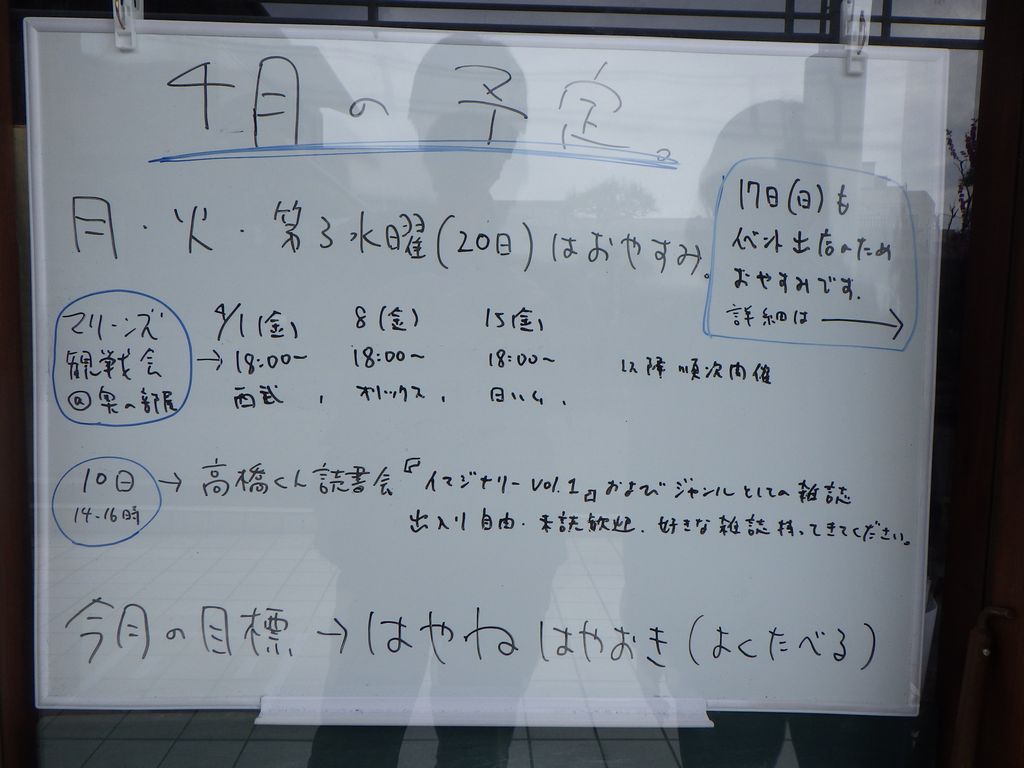 4月の予定。
月・火・第3水曜(20日)はおやすみ。
17日(日)も
イベント出店のため
おやすみです.
詳細は→
マリーンズ
観戦会
@奥の部屋
→
4/1(金)
18:00〜
西武,
8(金)
18:00〜
オリックス,
15(金)
18:00〜
日ハム,
以降順次開催
10日
14-16時
→高橋くん読書会『イマジナリーvol.1』およびジャンルとしての雑誌
出入り自由・未読歓迎.好きな雑誌持ってきてください。
今月の目標→はやねはやおき(よくたべる)